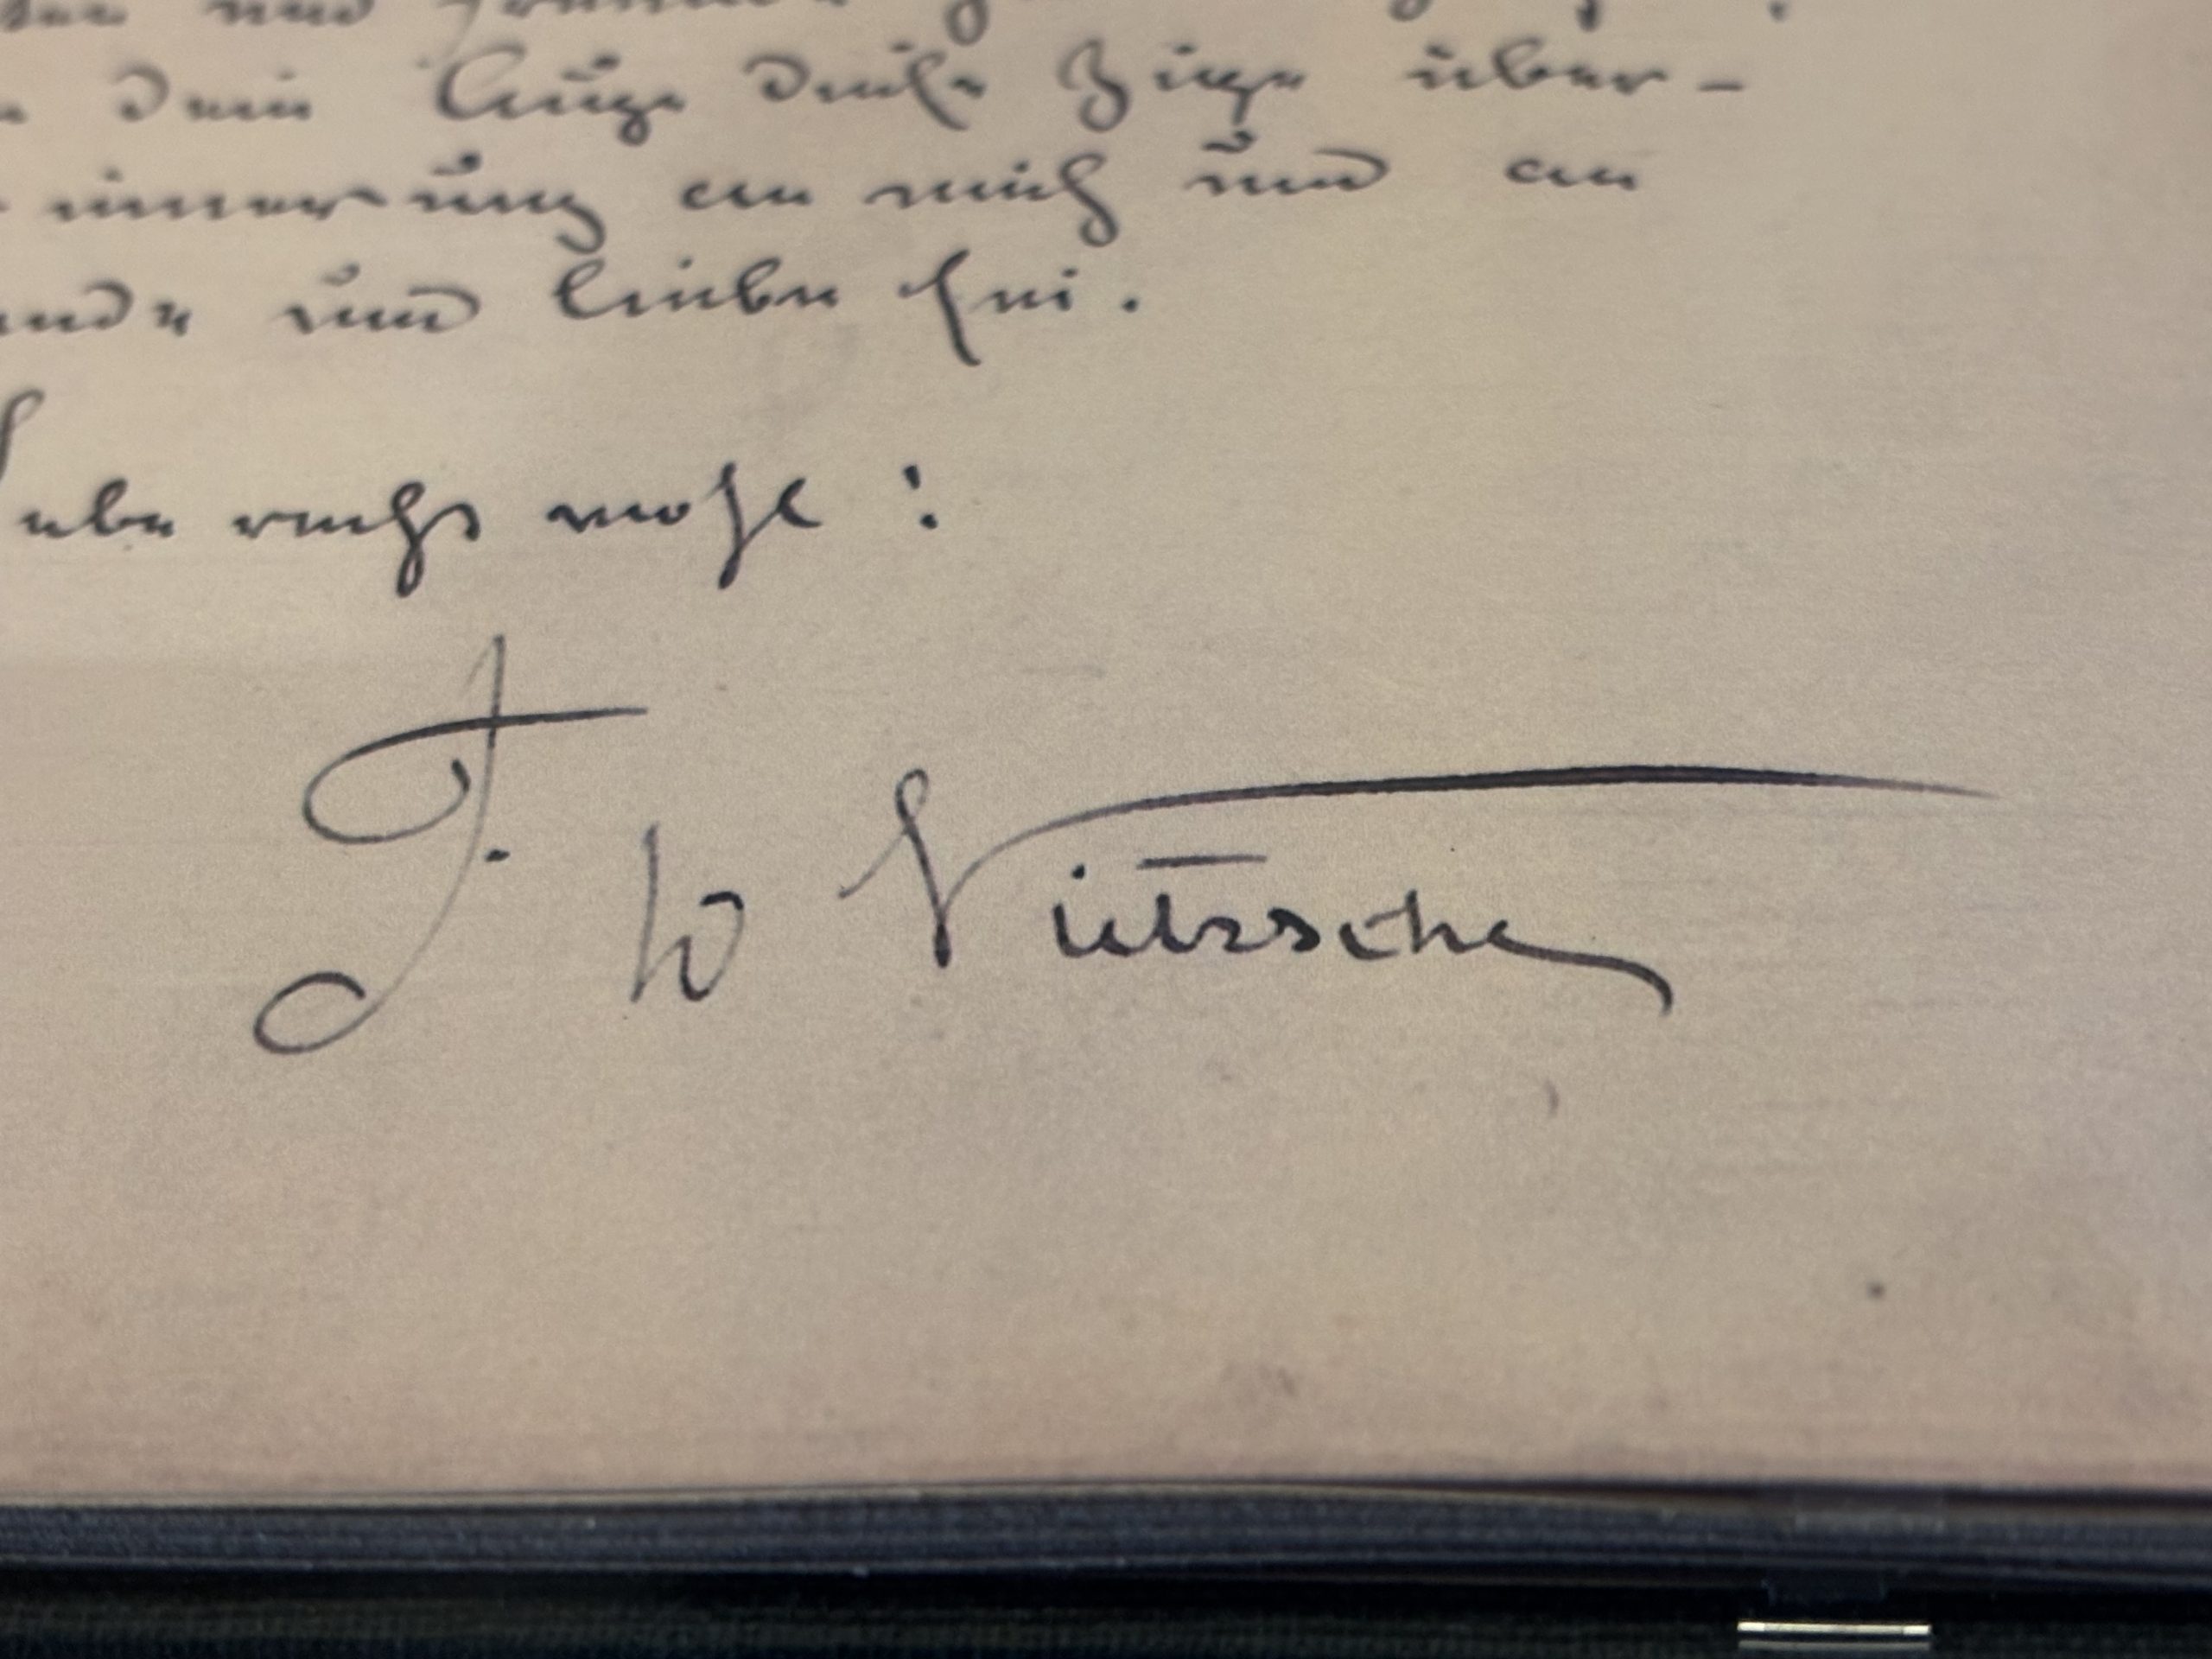 und
dein Auge diese Züge über-
innerung an mich und an
und lieben sei.
ebe recht wohl!
F. W Nietzsche